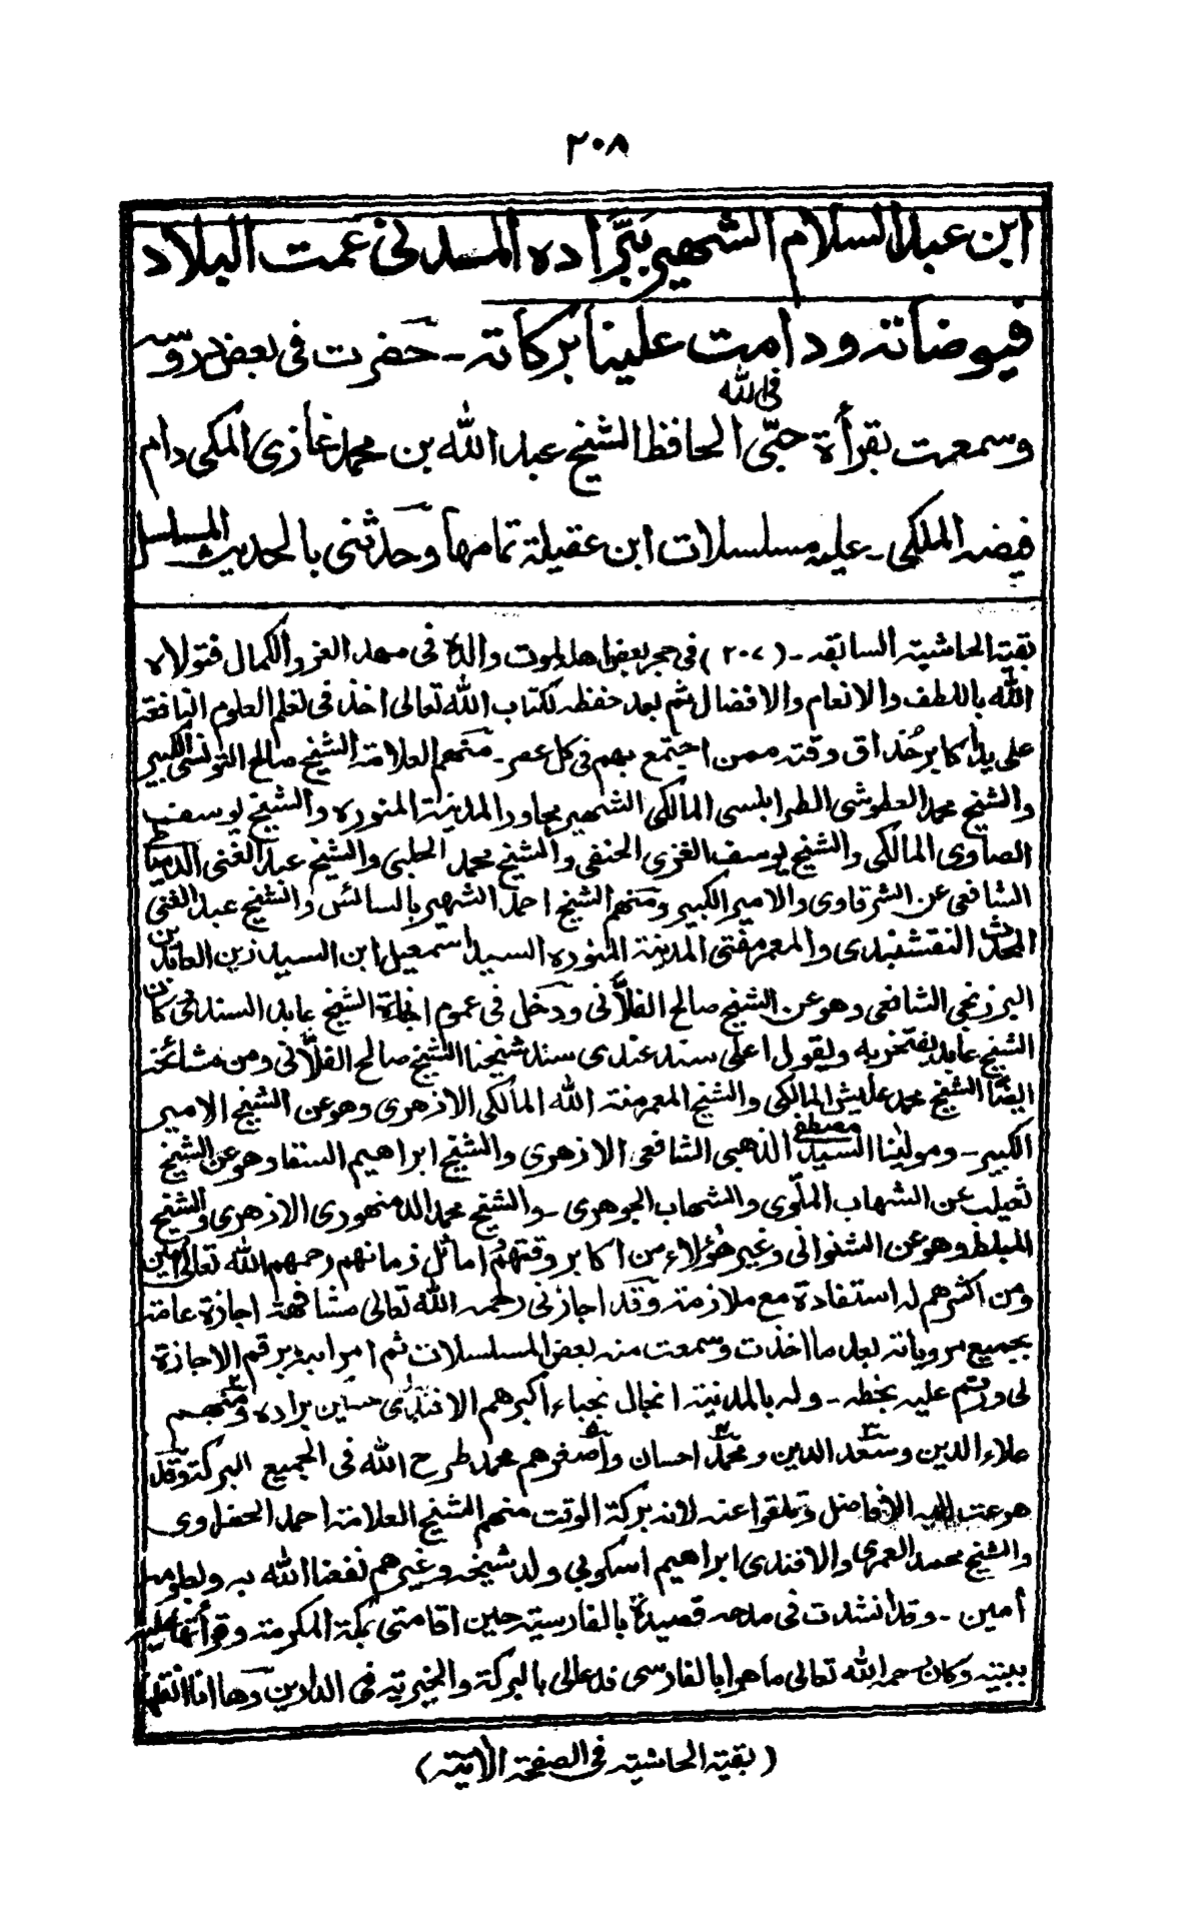 ٢٠٨
ابن عبد السلام الشهير ببرّاده المدنى عمت البلاد
فيوضاته ودامت علينا بركاته ـ حضرت فى بعض دروسه
وسمعت بقرأة حبّى فى الله الحافظ الشيخ عبد الله بن محمد غازى المكى دام
فيضه الملكى ـ عليه مسلسلات ابن عقيلة تمامها وحدثنى بالحديث المسلسل
بقية الحاشية السابقه ـ (٢٠٧) فى حجر بعض اهل لموت والده فى مهد العز والكمال فتولاه
الله باللطف والانعام والافضال ثم بعد حفظه لكتاب الله تعالى اخذ فى تعلم العلوم النافعة
على يد أكابر حُذاق وقته ممن اجتمع بهم فى كل عصر ـ منهم العلامة الشيخ صالح التونسى الكبير
والشيخ محمد العطوشى الطرابلسى المالكى الشهير بمجاور المدينة المنوره والشيخ يوسف
الصاوى المالكى والشيخ يوسف الغزى الحنفى والشيخ محمد الحلبى والشيخ عبد الغنى الدمياطى
الشافعى عن الشرقاوى والامير الكبير ومنهم الشيخ احمد الشهير بالسائس والشيخ عبد الغنى
المحدث النقشبندى والمعمر مفتى المدينة المنوره السيد اسمعيل ابن السيد زين العابدين
البرزنجى الشافعى وهو عن الشيخ صالح الفلّانى ودخل فى عموم اجازة الشيخ عابد السندى كان
الشيخ عابد يفتخر به ويقول اعلى سند عندى سند شيخنا الشيخ صالح الفلّانى ومن مشائخه
ايضًا الشيخ محمد عليش المالكى والشيخ المعمر منة الله المالكى الازهرى وهو عن الشيخ الامير
الكبير ـ ومولينا السيد مصطفى الذهبى الشافعى الازهرى والشيخ ابراهيم السقا وهو عن الشيخ
ثعيلب عن الشهاب الملّوى والشهاب الجوهرى ـ والشيخ محمد الدمنهورى الازهرى والشيخ
المبلط وهو عن الشنوانى وغير هؤلاء من اكابر وقتهم أماثل زمانهم رحمهم الله تعالى امين
ومن اكثرهم له استفادة مع ملازمة وقد اجازنى رحمه الله تعالى مشافهة اجازة عامة
بجميع مروياته بعد ما اخذت وسمعت منه بعض المسلسلات ثم امر ابنه برقم الاجازة
لى ورقم عليه بخطه ـ وله بالمدينة انجال نجباء أكبرهم الافندى حسين براده ومنهم
علاء الدين وسعد الدين ومحمد احسان وأصغرهم محمد طرح الله فى الجميع البركة وقد
هرعت اليه الافاضل وتلقوا عنه لانه بركة الوقت منهم الشيخ العلامة احمد الحضراوى
والشيخ محمد العمرى والافندى ابراهيم اسكوبى ولد شيخه وغيرهم نفعنا الله به وبعلومه
أمين ـ وقد انشدت فى مدحه قصيدة بالفارسية حين اقامتى بمكة المكرمة وقرأتها عليه
ببيته وكان رحمه الله تعالى ماهرا بالفارسى فدعالى بالبركة والخيرية فى الدارين وها انا انقلها
(بقية الحاشية فى الصفحة الأتية)